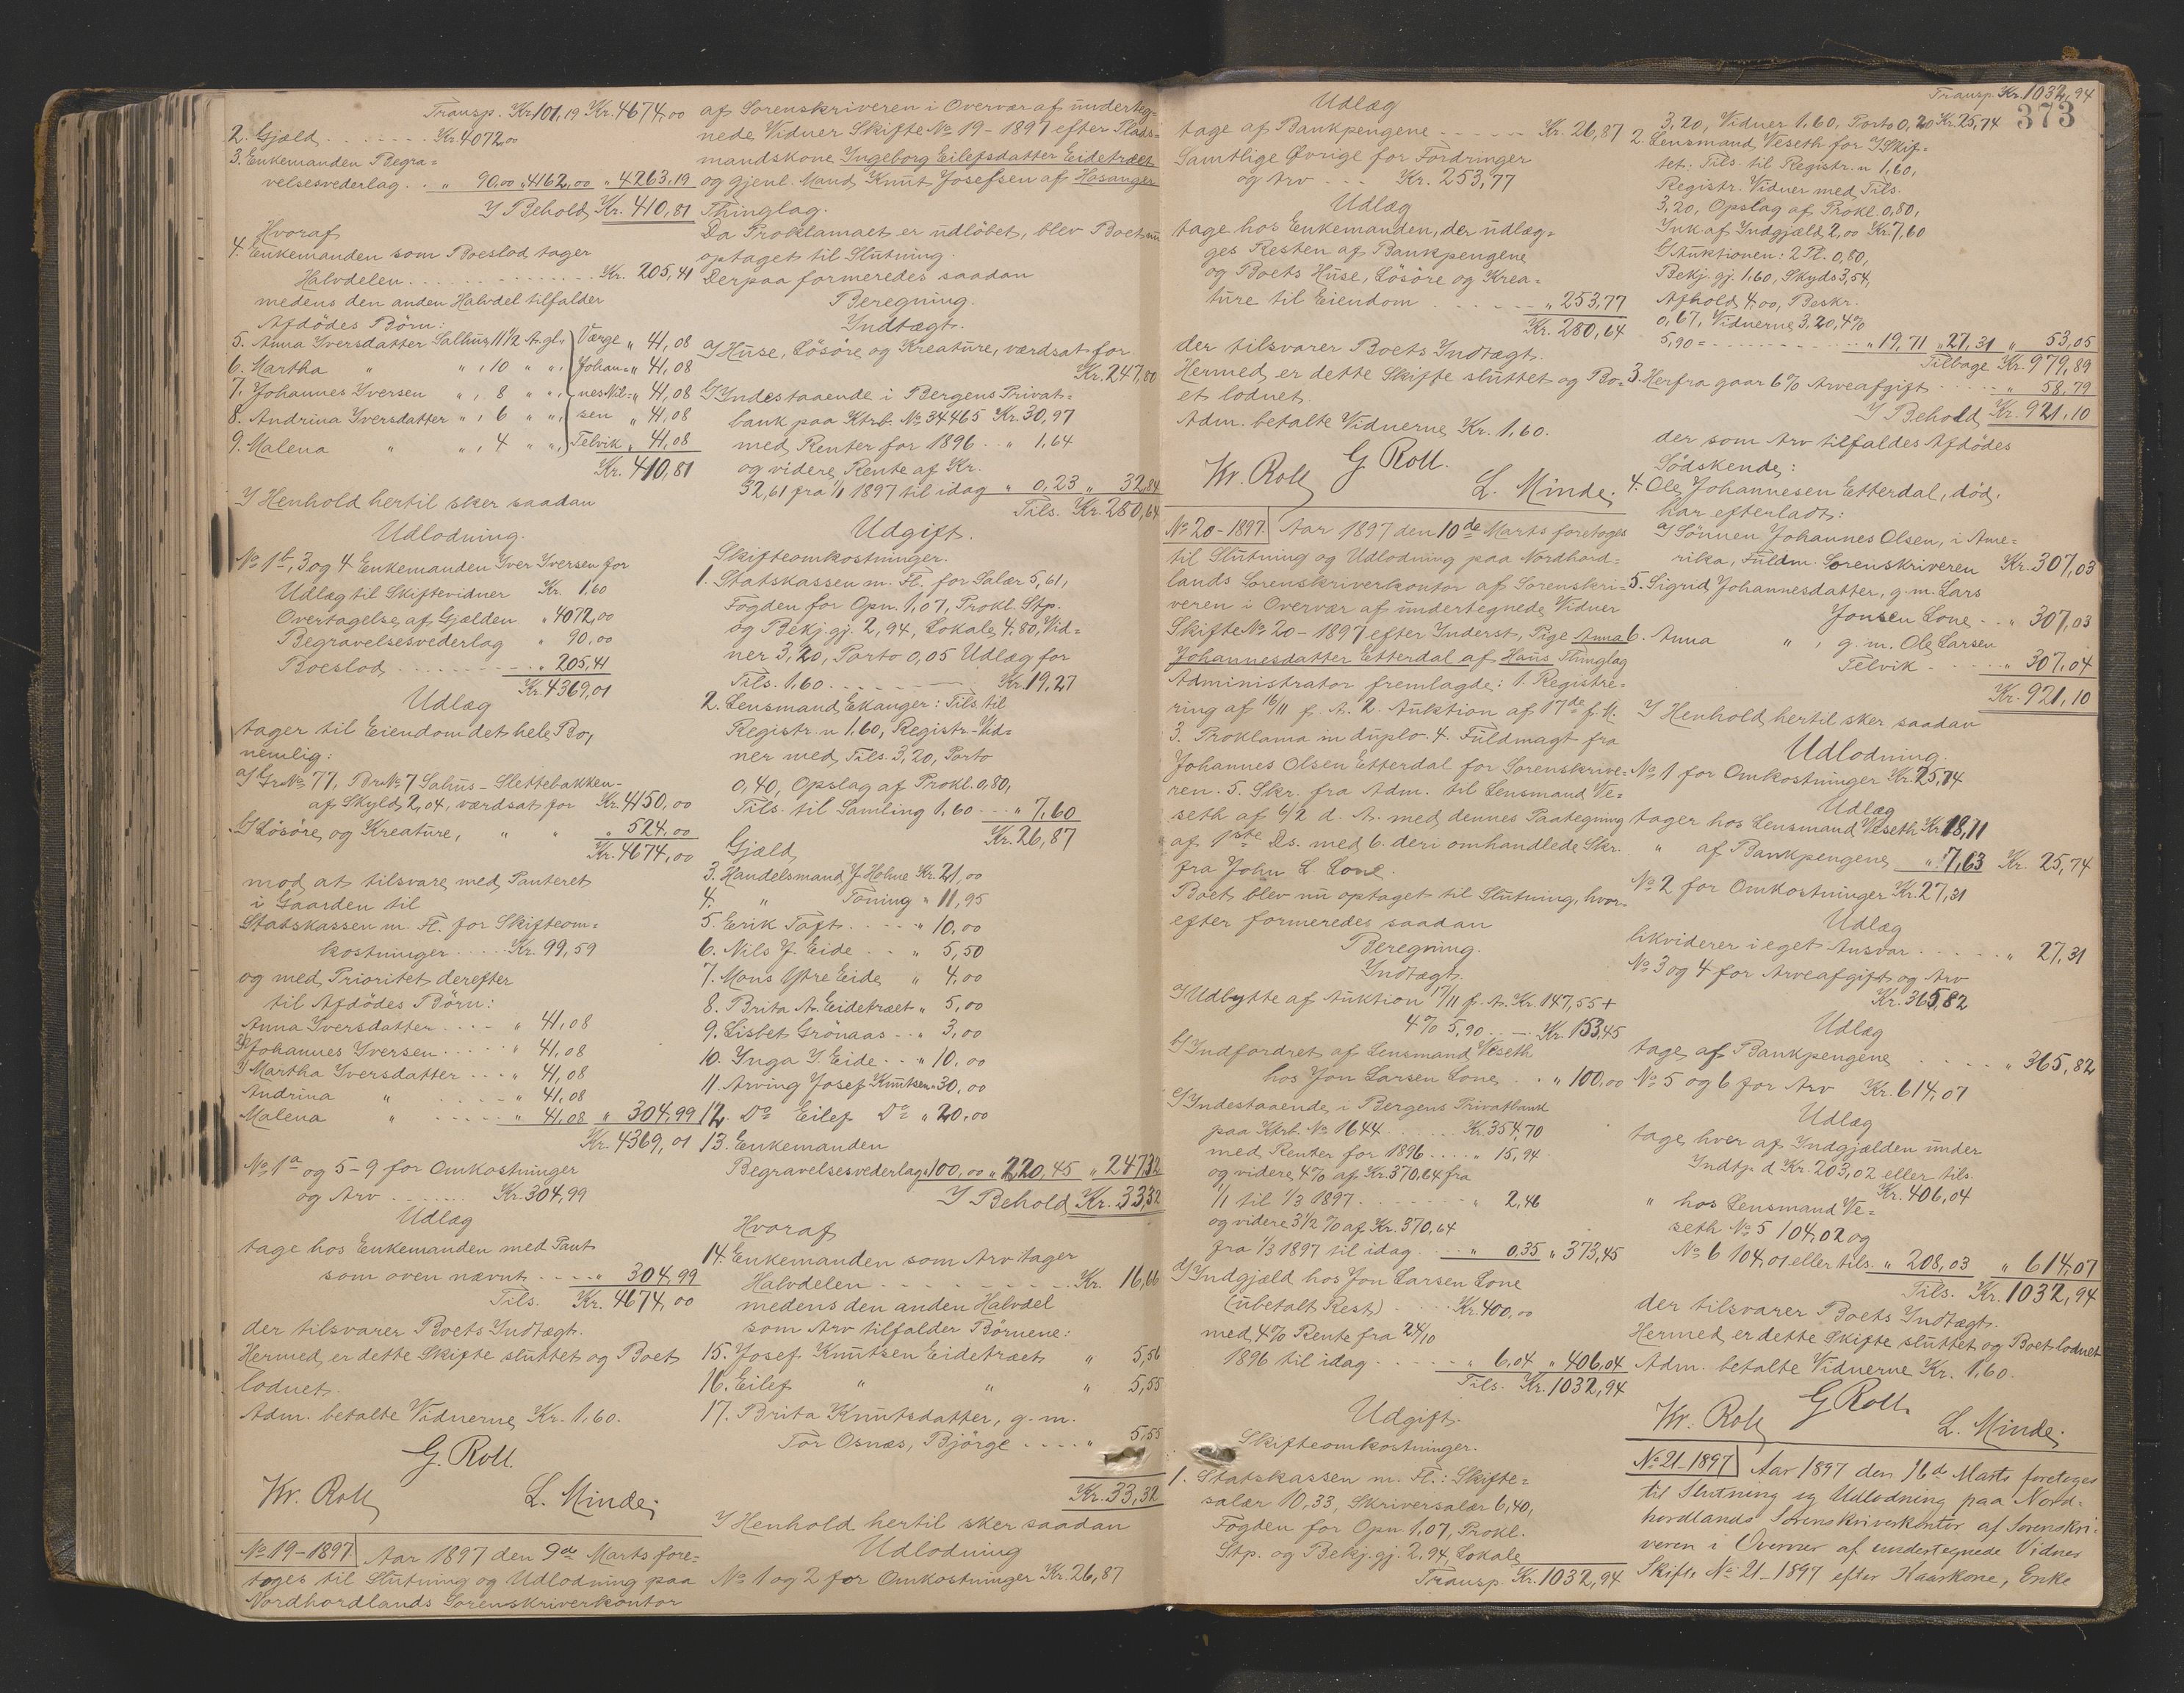 Transp. Kr. 101,19 Kr. 4674,00
2. Gjæld . . . . . . . Kr. 4072,00
3. Enkemanden Begra=
velsesvederlag . . „ 90,00 „ 4162,00 „ 4263,19
I Behold Kr. 410,81
Hvoraf
4. Enkemanden som Boeslod tager
Halvdelen . . . . . . . . Kr. 205,41
medens den anden Halvdel tilfalder
Afdödes Börn:
5. Anna Iversdatter Salhus, 11½ A. gl., Værge „ 41,08
6. Martha „ „ , 10 „ „ , Johan= „ 41,08
7. Johannes Iversen „ , 8 „ „ , nes Nil= „ 41,08
8. Andrina Iversdatter „ , 6 „ „ , sen „ 41,08
9. Malena „ „ , 4 „ „ , Telvik „ 41,08
Kr. 410,81
I Henhold hertil sker saadan
Udlodning.
No 1b, 3 og 4 Enkemanden Iver Iversen for
Udlæg til Skiftevidner Kr. 1,60
Overtagelse af Gjælden „ 4072,00
Begravelsesvederlag „ 90,00
Boeslod . . . . . . . „ 205,41
Kr. 4369,01
Udlæg
tager til Eiendom det hele Bo,
nemlig:
a) Gr. No 77, Br. No 7 Salhus-Slettebakken-
af Skyld 2,04, værdsat for Kr. 4150,00
b) Lösöre og Kreature, „ „ „ 524,00
Kr. 4674,00
mod at tilsvare med Panteret
i Gaarden til
Statskassen m. Fl. for Skifteom=
kostninger . . . . Kr. 99,59
og med Prioritet derefter
til Afdödes Börn:
Anna Iversdatter . . . . „ 41,08
Johannes Iversen . . . . . „ 41,08
Martha Iversdatter . . . „ 41,08
Andrina „ . . . . „ 41,08
Malena „ . . . . . „ 41,08 „ 304,99
Kr. 4369,01
No 1a og 5-9 for Omkostninger
og Arv . . . . . . . Kr. 304,99
Udlæg
tage hos Enkemanden med Pant
som oven nævnt . . . . „ 304,99
Tils. Kr. 4674,00
der tilsvarer Boets Indtægt.
Hermed er dette Skifte sluttet og Boet
lodnet.
Adm. betalte Vidnerne Kr. 1,60.
G. Roll.
Kr. Roll L. Minde.
No 19-1897 Aar 1897 den 9de Marts fore=
toges til Slutning og Udlodning paa
Nordhordlands Sorenskriverkontor
af Sorenskriveren i Overvær af underteg=
nede Vidner Skifte No 19-1897 efter Plads=
mandskone Ingeborg Eilefsdatter Eidetræet
og gjenl. Mand Knut Josefsen af Hosanger
Thinglag.
Da Proklamaet er udlöbet, blev Boet nu
optaget til Slutning.
Derpaa formeredes saadan
Beregning.
Indtægt.
a) Huse, Lösöre og Kreature, værdsat for
Kr. 247,80
b) Indestaaende i Bergens Privat=
bank paa Ktrb. No 34465 Kr. 30,97
med Renter for 1896 . . „ 1,64
og videre Rente af Kr.
32,61 fra 1/1 1897 til idag „ 0,23 „ 32,84
Tils. Kr. 280,64
Udgift.
Skifteomkostninger.
1. Statskassen m. Fl. for Salær 5,61,
Fogden for Opn. 1,07, Prokl. Stp.
og Bekj.gj. 2,94, Lokale 4,80, Vid=
ner 3,20, Porto 0,05 Udlæg for
Tils. 1,60 . . . . . . . . Kr. 19,27
2. Lensmand Ekanger: Tils. til
Registr. n 1,60, Registr.-Vid=
ner med Tils. 3,20, Porto
0,40, Opslag af Prokl. 0,80,
Tils. til Samling 1,60 . . . „ 7,60
Kr. 26,87
Gjæld
3. Handelsmand J. Holme Kr. 21,00
4. „ Föning „ 11,95
5. Erik Toft . . . . . „ 10,00
6. Nils J. Eide . . „ 5,50
7. Mons Ytre Eide „ 4,00
8. Brita A. Eidetræet „ 5,00
9. Lisbet Grönaas . . „ 3,00
10. Inga I. Eide . . . „ 10,00
11. Arving Josef Knutsen „ 30,00
12. Do Eilef Do „ 20,00
13. Enkemanden
Begravelsesvederlag „ 100,00 „ 220,45 „ 247,32
I Behold Kr. 33,32
Hvoraf
14. Enkemanden som Arv tager
Halvdelen . . . . . . . . Kr. 16,66
medens den anden Halvdel
som Arv tilfalder Börnene:
15. Josef Knutsen Eidetræet „ 5,56
16. Eilef „ „ „ 5,55
17. Brita Knutsdatter, g. m.
Tor Osnæs, Björge . . . . „ 5,55
Kr. 33,32
I Henhold hertil sker saadan
Udlodning
No 1 og 2 for Omkostninger Kr. 26,87
Udlæg
tage af Bankpengene . . . . . Kr. 26,87
Samtlige Övrige for Fordringer
og Arv . . . Kr. 253,77
Udlæg
tage hos Enkemanden, der udlæg=
ges Resten af Bankpengene
og Boets Huse, Lösöre og Krea=
ture til Eiendom . . . . . . „ 253,77
Kr. 280,64
der tilsvarer Boets Indtægt.
Hermed er dette Skifte sluttet og Bo=
et lodnet.
Adm. betalte Vidnerne Kr. 1,60.
G Roll.
Kr. Roll L. Minde.
No 20-1897. Aar 1897 den 10de Marts foretoges
til Slutning og Udlodning paa Nordhord=
lands Sorenskriverkontor af Sorenskri=
veren i Overvær af undertegnede Vidner
Skifte No 20-1897 efter Inderst, Pige Anna
Johannesdatter Etterdal af Haus Thinglag
Administrator fremlagde: 1. Registre=
ring af 16/11 f. A. 2. Auktion af 17de f. M.
3. Proklama in duplo. 4. Fuldmagt fra
Johannes Olsen Etterdal for Sorenskrive=
ren. 5. Skr. fra Adm. til Lensmand Ve=
seth af 6/2 d. A. med dennes Paategning
af 1ste Ds. med 6. deri omhandlede Skr.
fra John L. Lone.
Boet blev nu optaget til Slutning, hvor=
efter formeredes saadan
Beregning.
Indtægt.
a) Udbytte af Auktion 17/11 f. A. Kr. 147,55 +
4% 5,90 . . . . . Kr. 153,45
b) Indfordret af Lensmand Veseth
hos Jon Larsen Lone . . „ 100,00
c) Indestaaende i Bergens Privatbank
paa Ktrb. No 1644 . . . . . Kr. 354,70
med Renter for 1896 . . . . „ 15,94
og videre 4% af Kr. 370,64 fra
1/1 til 1/3 1897 . . . . . . . „ 2,46
og videre 3½% af Kr. 370,64
fra 1/3 1897 til idag . . . „ 0,35 „ 373,45
d) Indgjæld hos Jon Larsen Lone
(ubetalt Rest) . . . . Kr. 400,00
med 4% Rente fra 24/10
1896 til idag . . . . . . „ 6,04 „ 406,04
Tils. Kr. 1032,94
Udgift.
Skifteomkostninger.
1. Statskassen m. Fl.: Skifte=
salær 10,33, Skriversalær 6,40,
Fogden for Opn. 1,07, Prokl.
Stp. og Bekj.gj. 2,94, Lokale
Transp. Kr. 1032,94
Transp. Kr. 1032,94
373
3,20, Vidner 1,60, Porto 0,20 Kr. 25,74
2. Lensmand Veseth for a) Skif=
tet: Tils. til Registr. n 1,60,
Registr. Vidner med Tils.
3,20, Opslag af Prokl. 0,80,
Ink. af Indgjæld 2,00 Kr. 7,60
b) Auktionen: 2 Pl. 0,80,
Bekj.gj. 1,60, Skyds 3,54,
Afhold 4,00, Beskr.
0,67, Vidnerne 3,20, 4%
5,90 = . . . . . . . . „ 19,71 „ 27,31 „ 53,05
Tilbage Kr. 979,89
3. Herfra gaar 6% Arveafgift . . . . „ 58,79
I Behold Kr. 921,10
der som Arv tilfaldes Afdödes
Södskende:
4. Ole Johannesen Etterdal, död,
har efterladt:
a) Sönnen Johannes Olsen, i Ame=
rika, Fuldm. Sorenskriveren Kr. 307,03
5. Sigrid Johannesdatter, g. m. Lars
Jonsen Lone . . „ 307,03
6. Anna „ , g. m. Ole Larsen
Telvik . . . . . „ 307,04
Kr. 921,10
I Henhold hertil sker saadan
Udlodning.
No 1 for Omkostninger Kr. 25,74
Udlæg
tager hos Lensmand Veseth Kr. 18,11
„ af Bankpengene „ 7,63 Kr. 25,74
No 2 for Omkostninger Kr. 27,31
Udlæg
likviderer i eget Ansvar . . . . . . „ 27,31
No 3 og 4 for Arveafgift og Arv
Kr. 365,82
Udlæg
tage af Bankpengene . . . . . „ 365,82
No 5 og 6 for Arv Kr. 614,07
Udlæg
tage hver af Indgjælden under
Indtp. d Kr. 203,02 eller tils.
Kr. 406,04
„ hos Lensmand Ve=
seth No 5 104,02 og
No 6 104,01 eller tils. „ 208,03 „ 614,07
Tils. Kr. 1032,94
der tilsvarer Boets Indtægt.
Hermed er dette Skifte sluttet og Boet lodnet
Adm. betalte Vidnerne Kr. 1,60.
G Roll.
Kr. Roll L. Minde.
No 21-1897 Aar 1897 den 16de Marts foretoges
til Slutning og Udlodning paa Nord=
hordlands Sorenskriverkontor af Sorenskri=
veren i Overvær af undertegnede Vidner
Skifte No 21-1897 efter Kaarkone, Enke